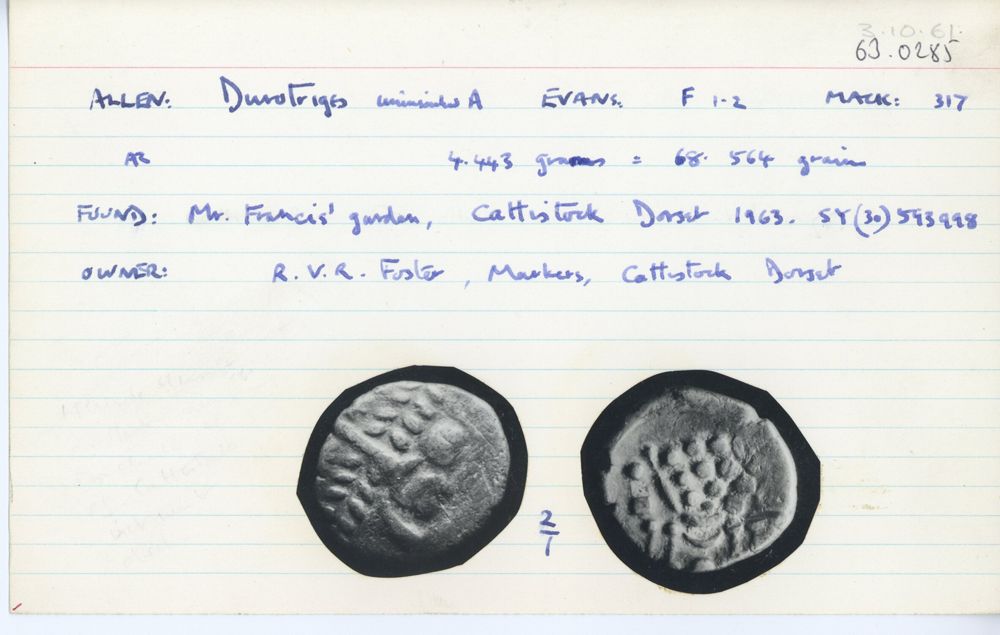 3.10.61.
63.0285
ALLEN: Durotriges uninscribed A EVANS: F 1-2 MACK: 317
AR 4.443 grams = 68.564 grains
FOUND: Mr. Francis' garden, Cattistock Dorset 1963. SY(30)593998
OWNER: R.V.R. Foster, Markers, Cattistock Dorset
2/1